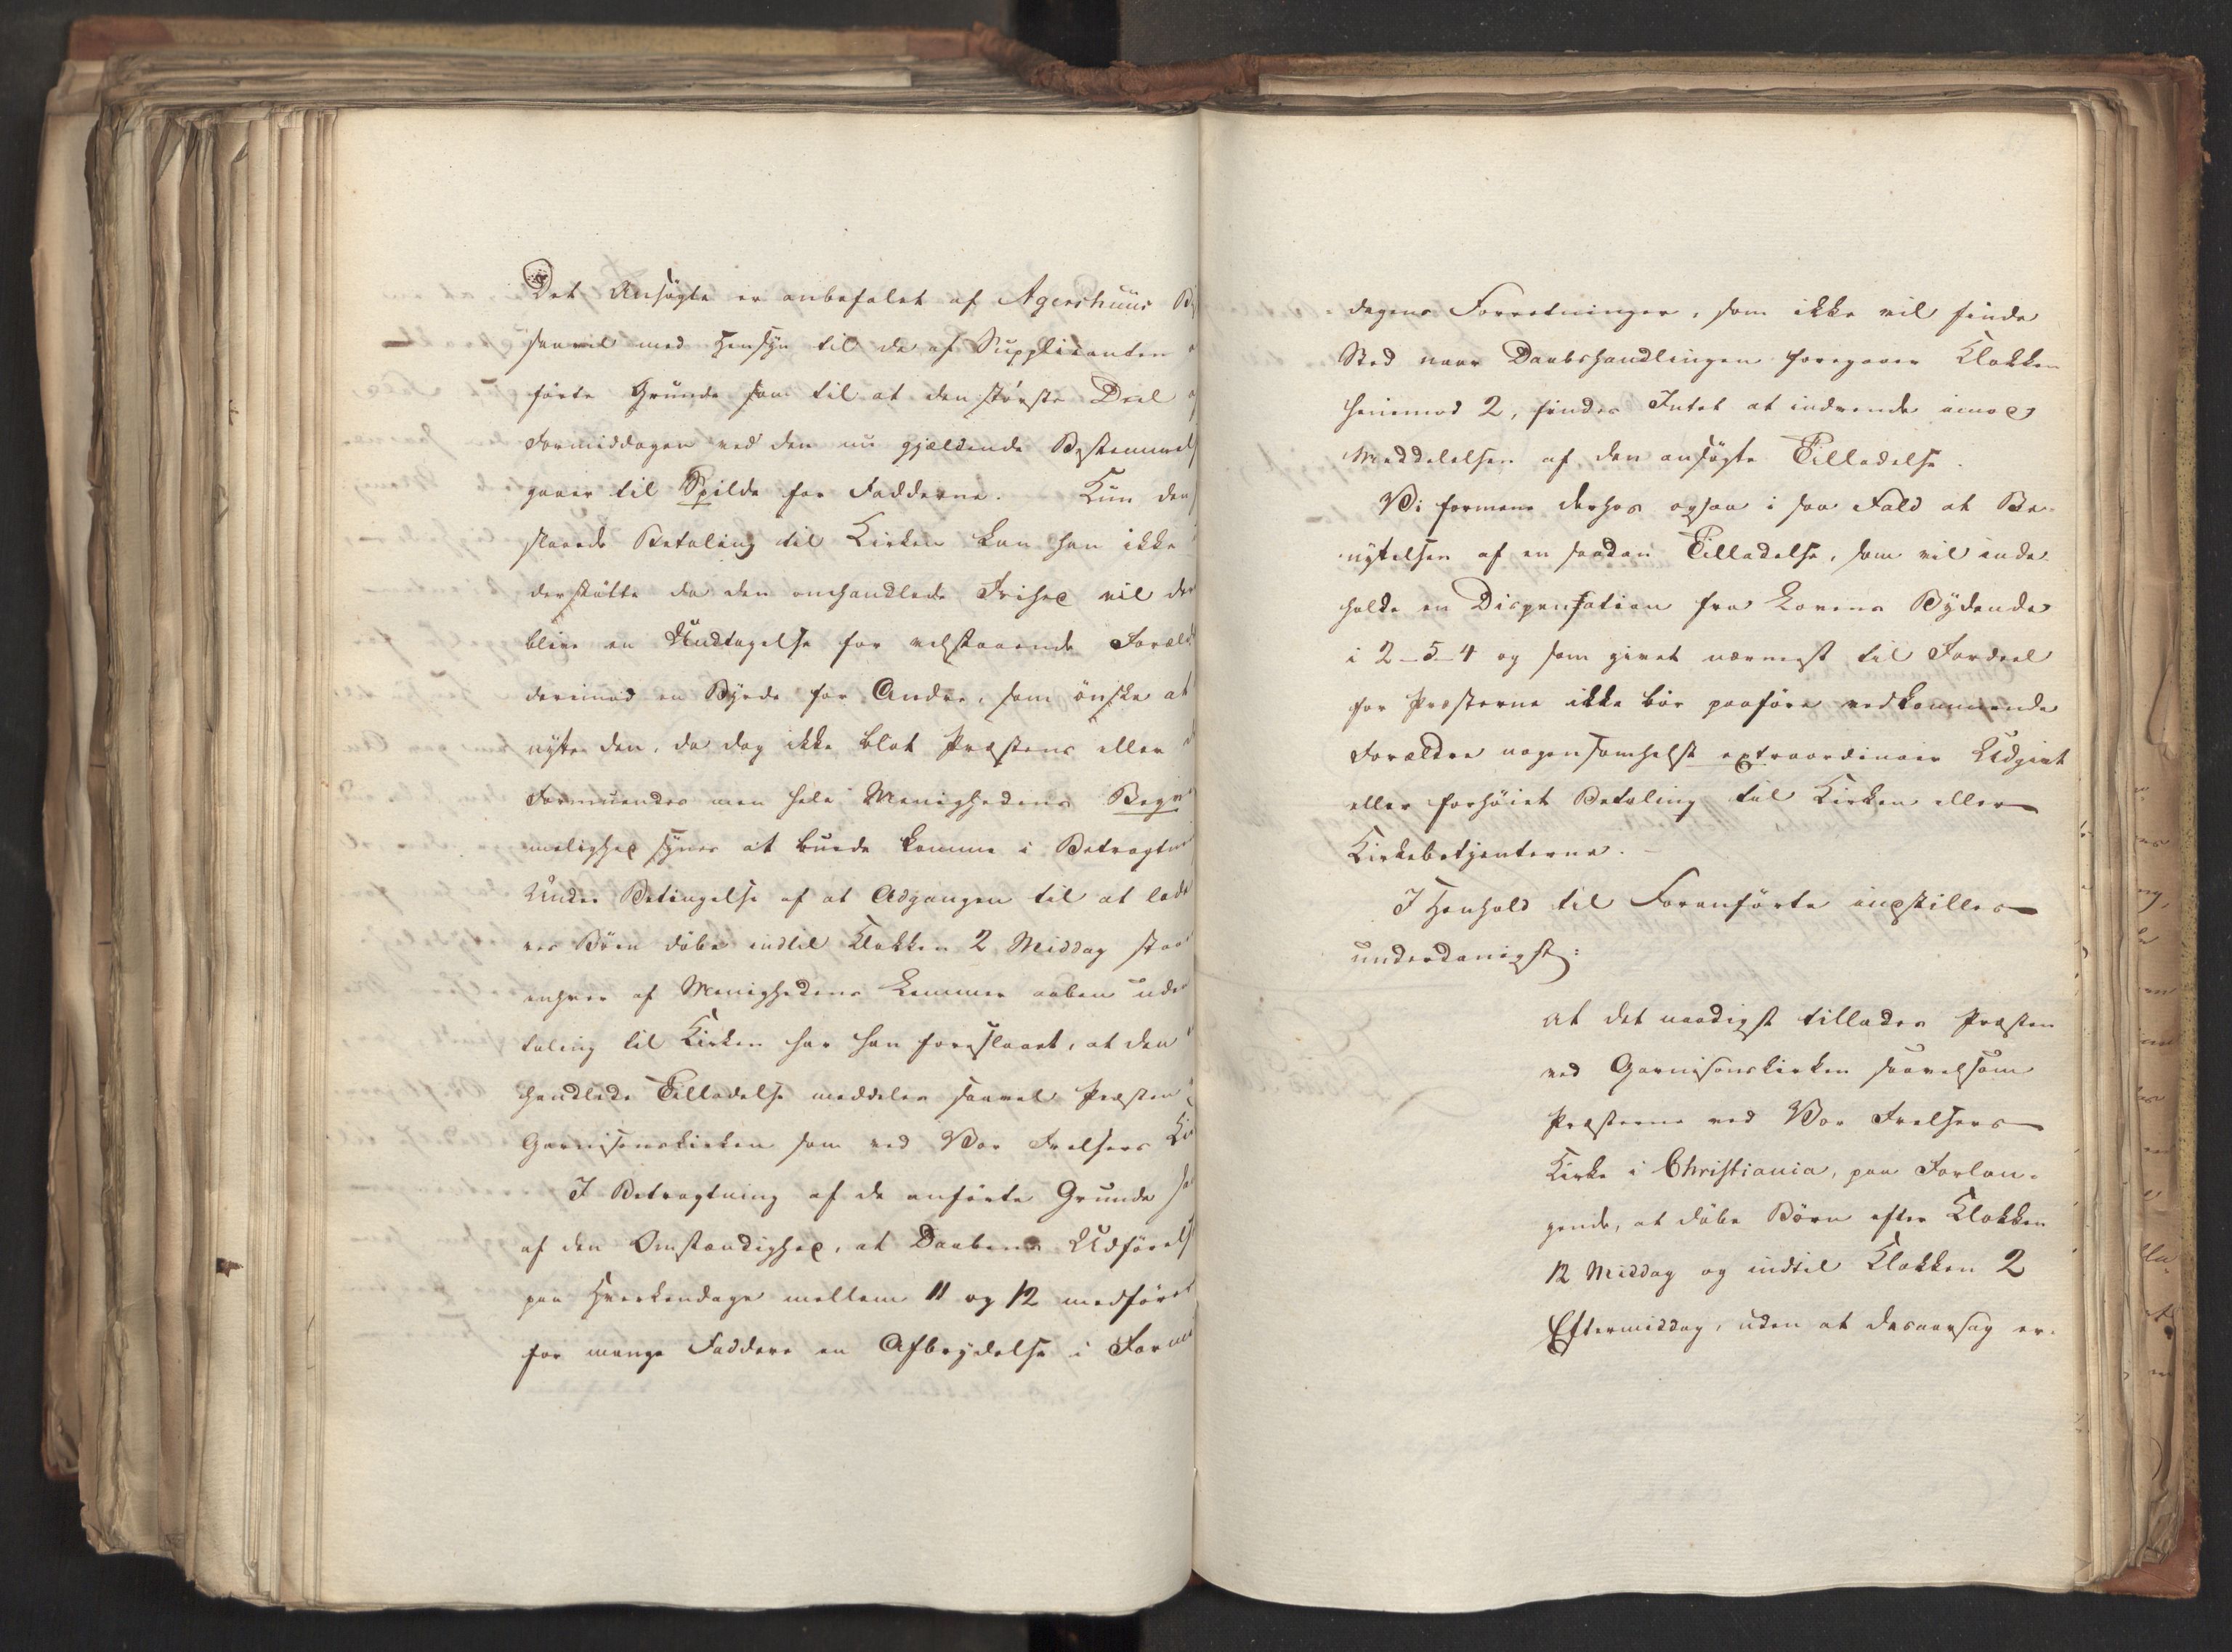 Det Ansøgte er anbefalet af Agershuus
saavel med Hensyn til de af Supplicanten
førte Grunde som til at den største Deel
Formiddagen ved den nu gjældende Bestemmel
gaaer til Spilde for Fadderne. Kun den
slaaede Betaling til Kirken kan han ikke
derstøtte da den omhandlede Frihed vil der
blive en Undtagelse for velstaaende Foræld
derimod en Byrde for Andre, som ønske at
nytte den, da dog ikke blot Præstens eller
Formuendes men hele Menighedens Beqve
melighed synes at burde komme i Betragtni
Under Betingelse af at Adgangen til at lade
res Børn døbe indtil Klokken 2 Middag staar
enhver af Menighedens Lemmer aaben uden
taling til Kirken har han foreslaaet, at den
handlede Tilladelse meddeles saavel Præsten
Garnisonskirken som ved Vor Frelsers Ki
I Betragtning af de anførte Grunde
af den Omstændighed, at Daabens Udførels
paa Hverkendage mellem 11 og 12 medfører
for mange Faddere en Afbrydelse i Formi
dagens Forretninger, som ikke vil finde
Sted naar Daabshandlingen foregaaer Klokken
henimod 2, findes Intet at indvende imod
Meddelelsen af den ansøgte Tilladelse.
Vi formene derhos ogsaa i saa Fald at Be-
nyttelsen af en saadan Tilladelse, som vil inde-
holde en Dispensation fra Lovens Bydende
i 2-5-4 og som givet nærmest til Fordeel
for Præsterne ikke bør paaføre vedkommende
Forældre nogensomhelst extraordinair Udgivt
eller forhøiet Betaling til Kirken eller
Kirkebetjenterne.
I Henhold til Foranførte indstilles
underdanigst:
at det naadigst tillades Præsten
ved Garnisonskirken saavelsom
Præsterne ved Vor Frelsers
Kirke i Christiania, paa Forlan-
gende, at døbe Børn efter Klokken
12 Middag og indtil Klokken 2
Eftermiddag, uden at desaarsag er-